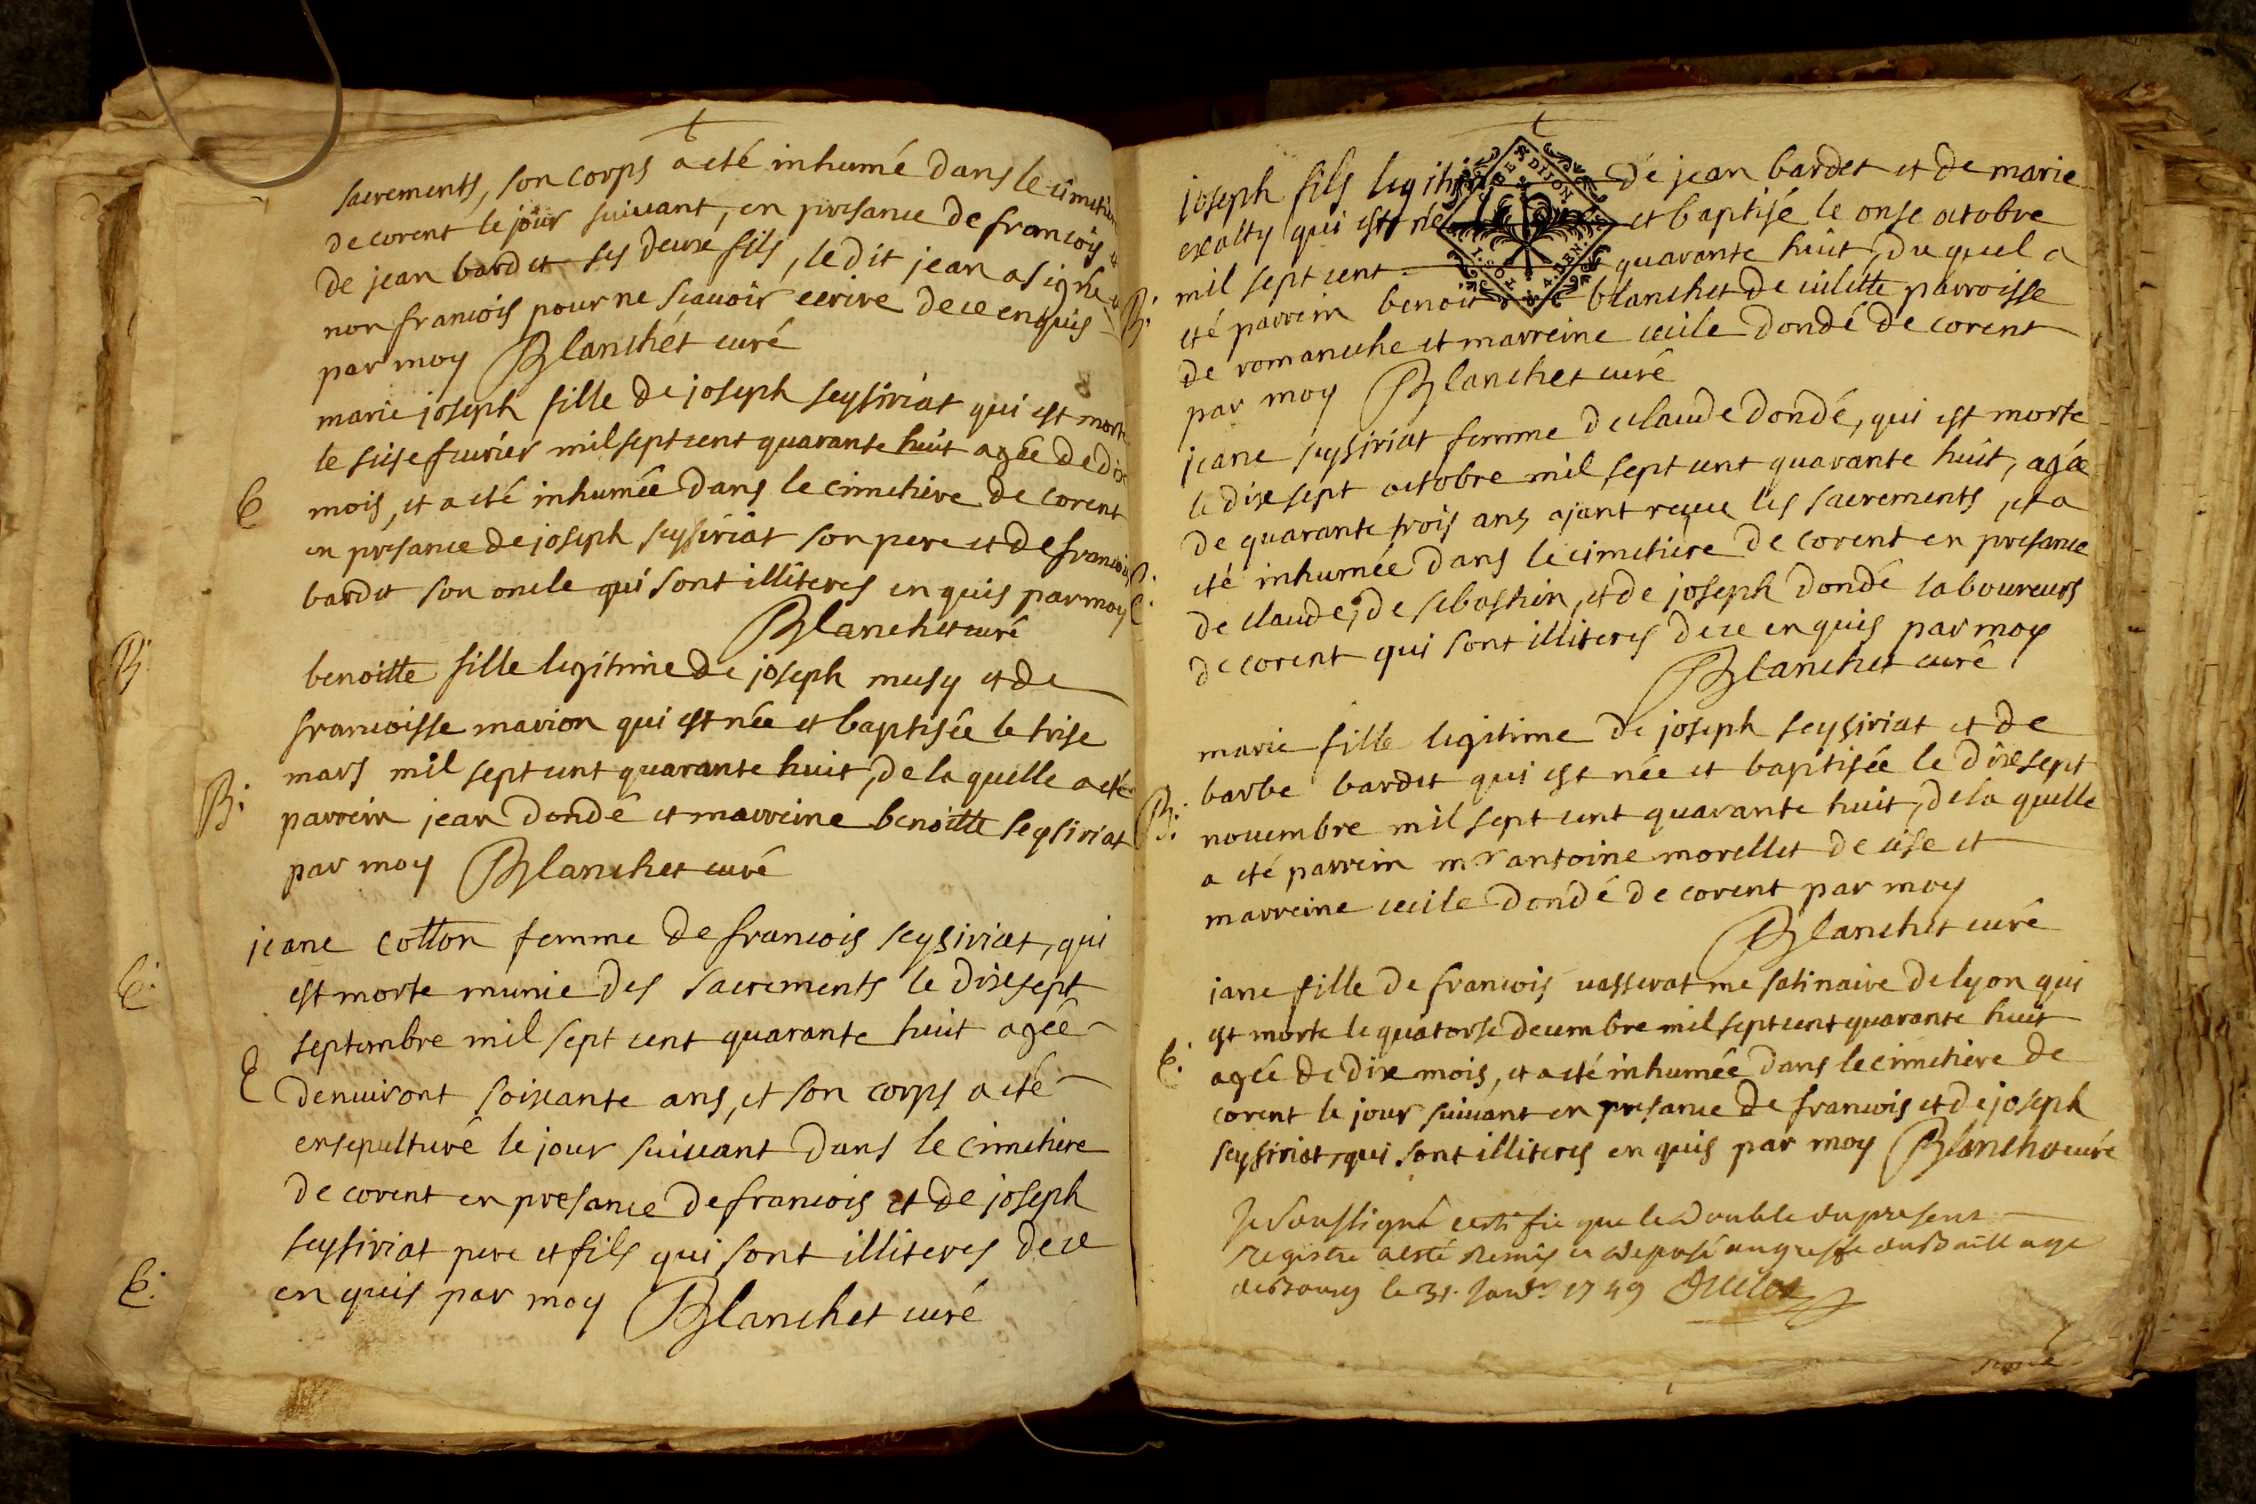 sacrements, son corps a eté inhumé dans le cimetiere
de corent le jour suivant, en presance de francois et
de jean bardet ses deuxe fils, le dit jean a signé
non francois pour ne scauoir ecrire de ce enquis
par moy Blanchet curé
marie joseph fille de joseph seysiriat qui est morte
le seise feurier mil sept cent quarante huit agée de dix
E
mois, et a eté inhumée dans le cimetiere de corent
en presance de joseph seysiriat son pere et de francois
bardet son oncle qui sont illiteres enquis par moy
Blanchet curé
B.
benoitte fille legitime de joseph musy et de
francoisse marion qui est née et baptisée le trise
mars mil sept cent quarante huit, de la quelle a eté
B:
parrein jean dondé et marreine benoitte seysiriat
par moy Blanchet curé
jeane cotton femme de francois seysiriat, qui
E.
est morte munie des sacrements le dixsept
septembre mil sept cent quarante huit agée
E
denuiront soixante ans, et son corps a eté
ensepulturé le jour suiuant dans le cimetiere
de corent en presance de francois et de joseph
seysiriat pere et fils qui sont illiteres de ce
E:
enquis par moy Blanchet curé
joseph fils legitime de jean bardet et de marie
exalty qui est né et baptisé le onse octobre
DE DIJON
B:
mil sept cent quarante huit, du quel a
eté parrein benoit blanchet de uilette parroisse
de romaneche et marreine cecile dondé de corent
par moy Blanchet curé
jeane seysiriat femme de claude dondé, qui est morte
le dixsept octobre mil sept cent quarante huit, agée
de quarante trois ans ajant reçue les sacrements, et a
E:
eté inhumée dans le cimetiere de corent en presance
de claude, de sebastien, et de joseph dondé laboureurs
de corent qui sont illiteres de ce enquis par moy
Blanchet curé
marie fille legitime de joseph seysiriat et de
barbe bardet qui est née et baptisée le dixsept
B:
nouembre mil sept cent quarante huit, de la quelle
a eté parrein mr antoine morellet de cise et
marreine cecile dondé de corent par moy
Blanchet curé
jane fille de francois uasserat me satinaire de lyon qui
est morte le quatorse decembre mil sept cent quarante huit
E.
agée de dixe mois, et a eté inhumée dans le cimetiere de
corent le jour suiuant en presance de francois et de joseph
seysiriat, qui sont illiteres enquis par moy Blanchet curé
Je soussigné certifie que le double du present
registre a esté remis et deposé au greffe du Bailliage
de Bourg le 31. Janvr 1749